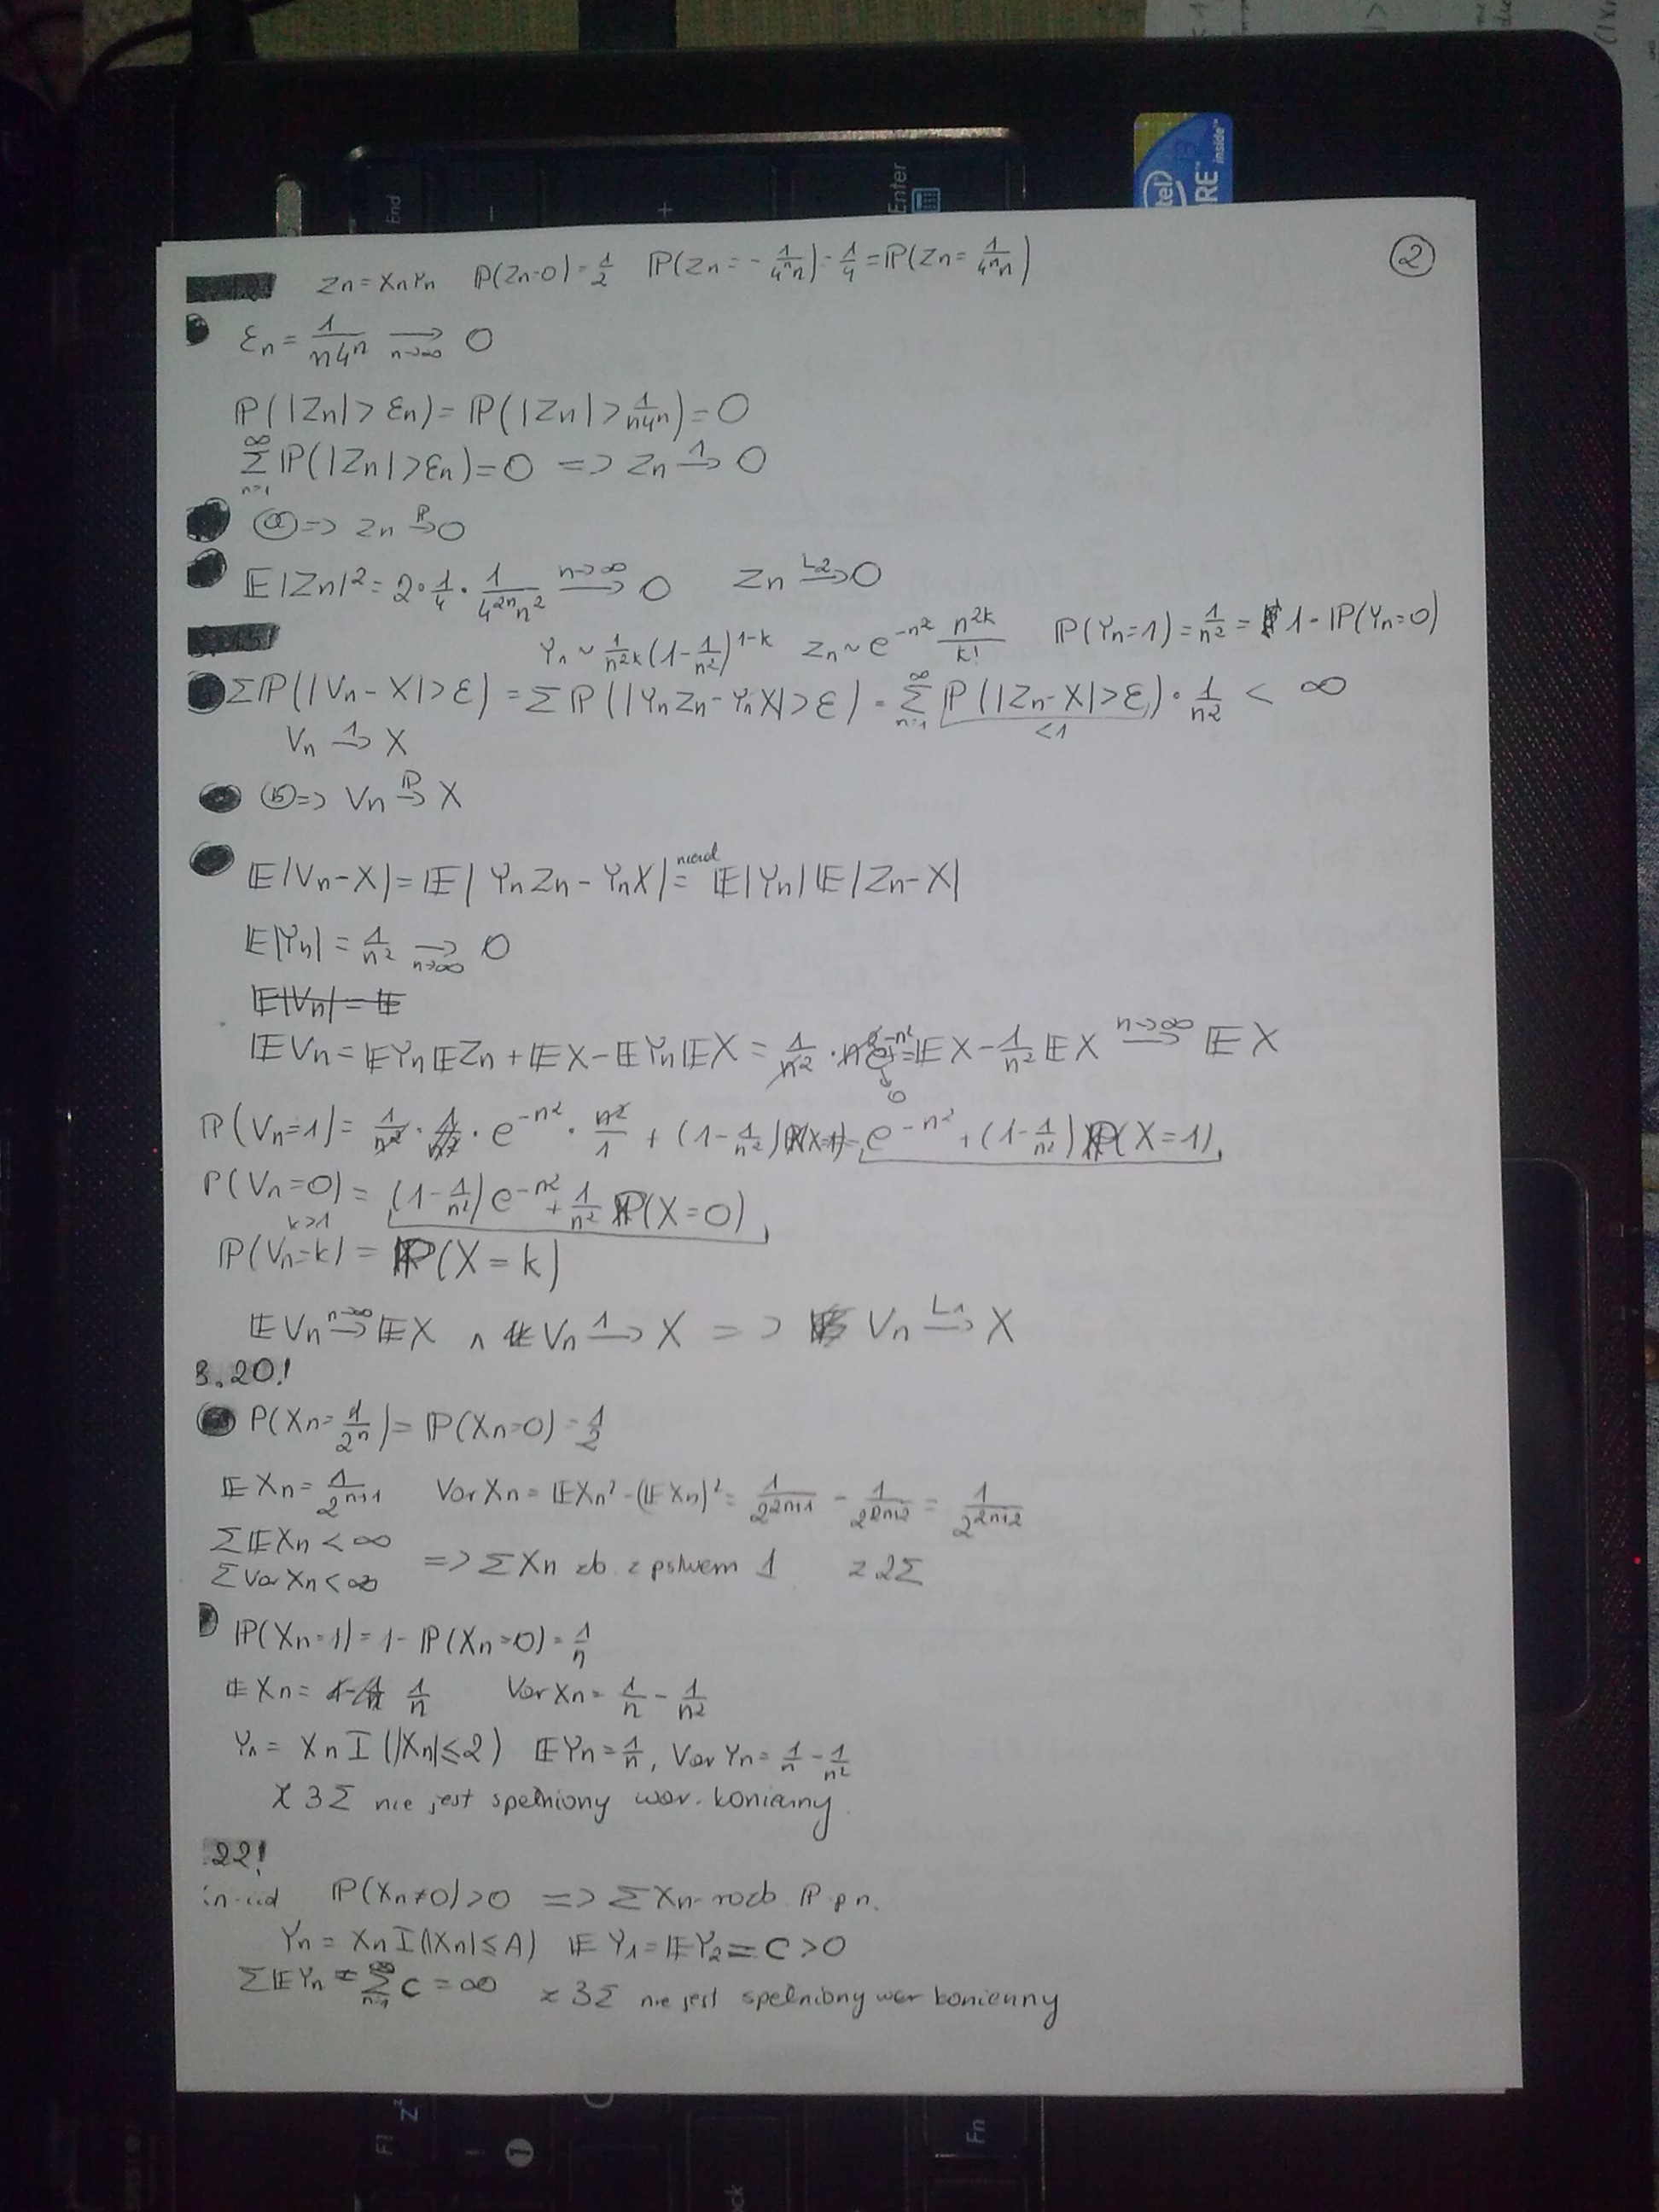 End
-
+
Enter
intel
CORE™
inside™
②
Zn = XnYn P(Zn=0)=1/2 P(Zn = - 1/(4ⁿn)) = 1/4 = P(Zn = 1/(4ⁿn))
εn = 1/(n4ⁿ) →(n→∞) 0
P(|Zn| > εn) = P(|Zn| > 1/(n4ⁿ)) = 0
∑_{n=1}^{∞} P(|Zn| > εn) = 0 => Zn →¹ 0
ⓐ => Zn →ᴾ 0
E|Zn|² = 2·1/4·1/(4²ⁿn²) →(n→∞) 0 Zn →ᴸ² 0
Yn ~ 1/n²ᵏ (1-1/n²)¹⁻ᵏ Zn ~ e^{-n²} n²ᵏ/k! P(Yn=1) = 1/n² = 1 - P(Yn=0)
∑P(|Vn - X| > ε) = ∑ P(|YnZn - YnX| > ε) = ∑_{n=1}^{∞} P(|Zn-X| > ε) · 1/n² < ∞
<1
Vn →¹ X
ⓑ => Vn →ᴾ X
E|Vn-X| = E|YnZn - YnX| = E|Yn| E|Zn-X|
E|Yn| = 1/n² →(n→∞) 0
E|Vn| = E
EVn = EYn EZn + EX - EYn EX = EX - 1/n² EX →(n→∞) EX
P(Vn=1) = 1/n² · e^{-n²} · n²/1 + (1-1/n²) P(X=1) = e^{-n²} + (1-1/n²) P(X=1)
P(Vn=0) = (1-1/n²) e^{-n²} + 1/n² P(X=0)
k>1
P(Vn=k) = P(X=k)
EVn →(n→∞) EX ∧ Vn →¹ X => Vn →ᴸ¹ X
3.20!
P(Xn=1/2ⁿ) = P(Xn=0) = 1/2
EXn = 1/2ⁿ⁺¹ Var Xn = EXn² - (EXn)² = 1/2²ⁿ⁺¹ - 1/2²ⁿ⁺² = 1/2²ⁿ⁺²
∑EXn < ∞
∑Var Xn < ∞ => ∑Xn zb. z pstwem 1 z 2∑
P(Xn=1) = 1 - P(Xn=0) = 1/n
EXn = 1/n Var Xn = 1/n - 1/n²
Yn = Xn I(|Xn|≤2) EYn = 1/n, Var Yn = 1/n - 1/n²
Z 3∑ nie jest spełniony war. konieczny
.22!
P(Xn≠0)>0 => ∑Xn - rozb. P pn.
Yn = Xn I(|Xn|≤A) EY₁ = EY₂ = C > 0
∑EYn = ∑_{n=1}^{∞} C = ∞ z 3∑ nie jest spełniony war konieczny
F1
Z
!
1
Fn